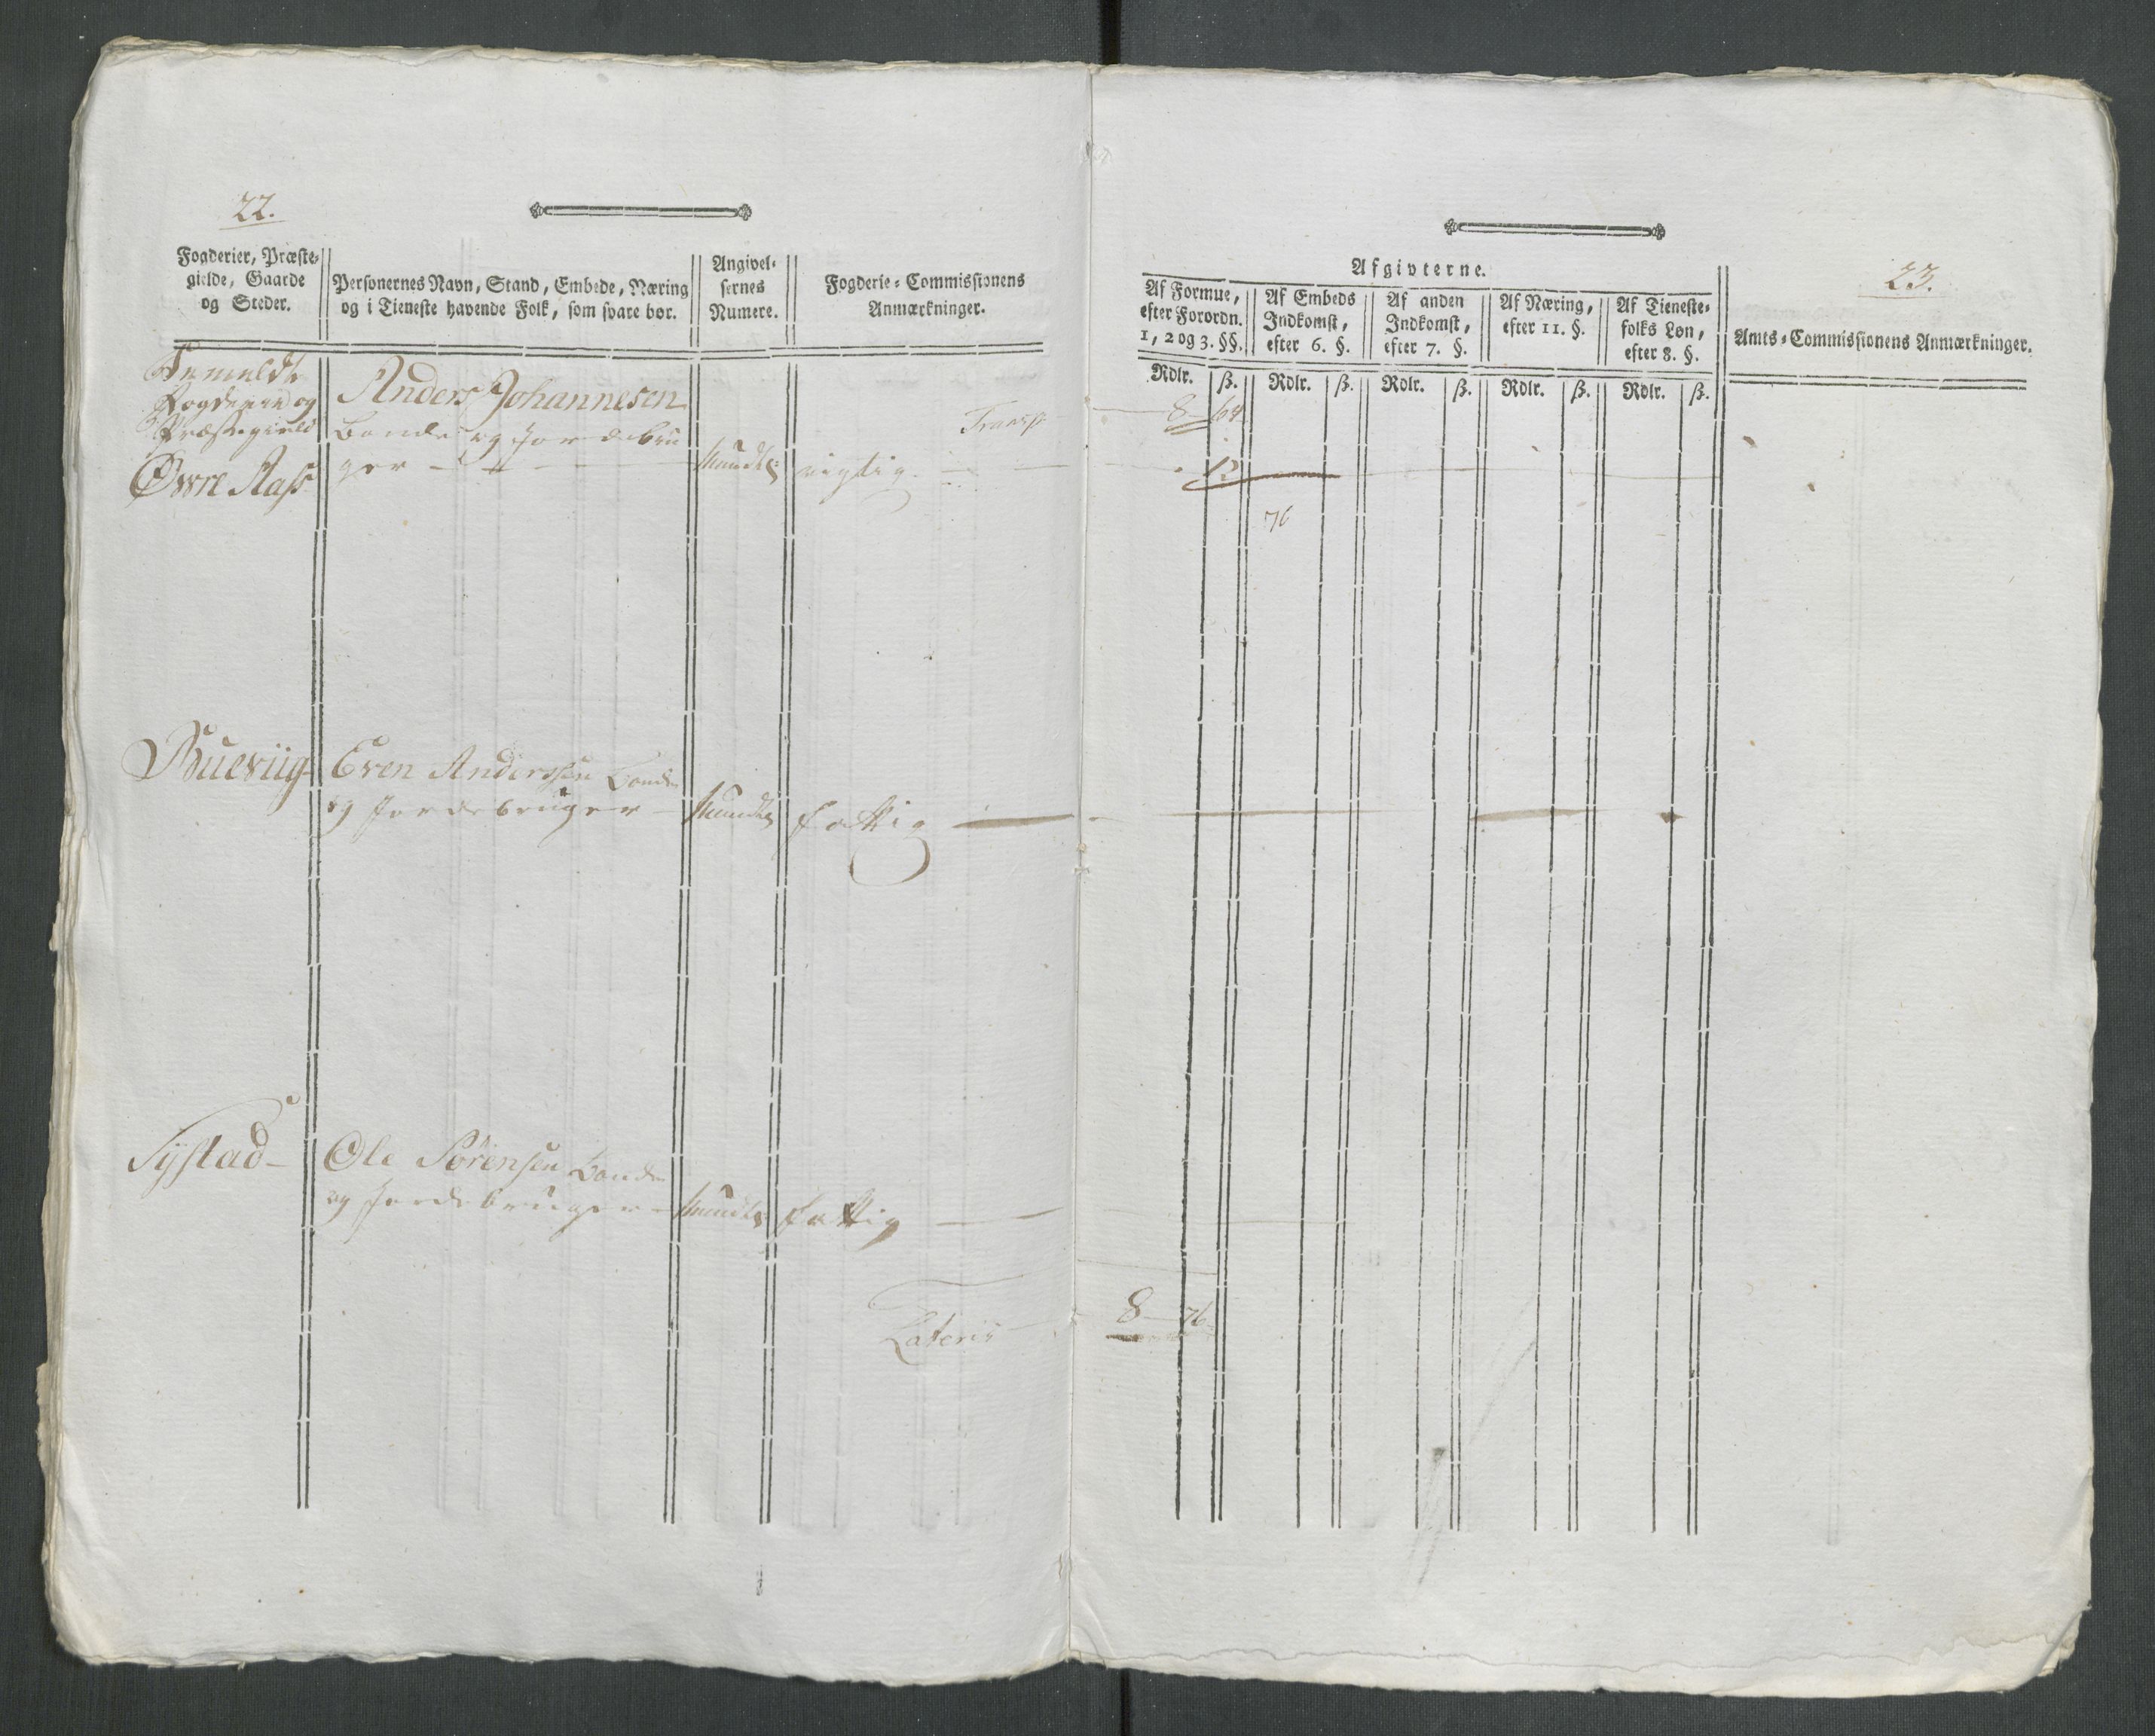 22.
Fogderier, Præste-
gielde, Gaarde
og Steder.
Personernes Navn, Stand, Embede, Næring
og i Tieneste havende Folk, som svare bør.
Angivel-
sernes
Numere.
Fogderie-Commissionens
Anmærkninger.
Anmeldte
Fogderie og
Præstegield
Øvre Aass
Anders Johannesen
Bonde og Jordebru
ger
Mundtl:
rigtig
Transp
Bueviig
Even Anderssen Bonde
og Jordebruger
Mundtl
fattig
Sÿstad
Ole Sørensen Bonde
og Jordebruger
Mundtl
fattig
Lateris
23.
Afgivterne.
Af Formue,
efter Forordn.
1, 2 og 3. §§.
Af Embeds
Indkomst,
efter 6. §.
Af anden
Indkomst,
efter 7. §.
Af Næring,
efter 11. §.
Af Tieneste-
folks Løn,
efter 8. §.
Amts-Commissionens Anmærkninger.
Rdlr. ß. Rdlr. ß. Rdlr. ß. Rdlr. ß. Rdlr. ß.
8 64
12
76
8 76